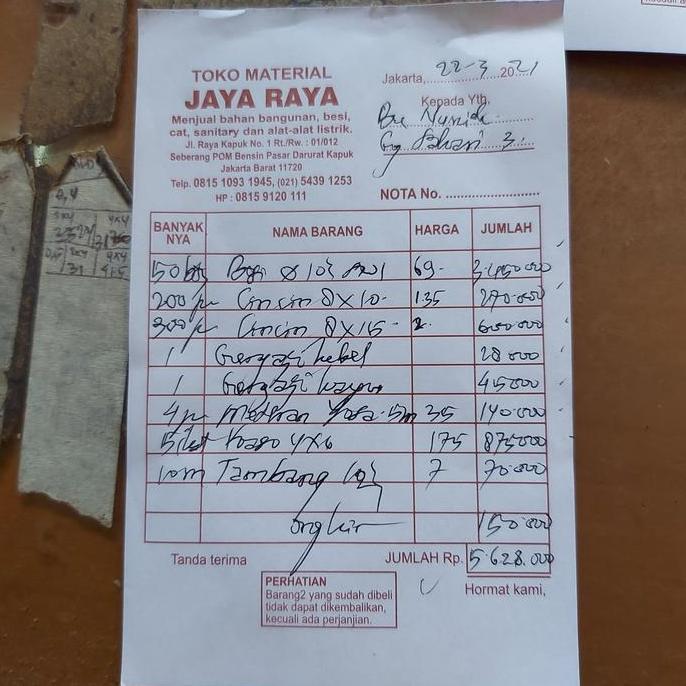 TOKO MATERIAL
JAYA RAYA
Menjual bahan bangunan, besi,
cat, sanitary dan alat-alat listrik.
Jl. Raya Kapuk No. 1 Rt./Rw. : 01/012
Seberang POM Bensin Pasar Darurat Kapuk
Jakarta Barat 11720
Telp. 0815 1093 1945, (021) 5439 1253
HP : 0815 9120 111
Jakarta, 22-3 2021
Kepada Yth,
Bu
Gg 3.
NOTA No.
BANYAK NYA NAMA BARANG HARGA JUMLAH
150 10 69- 3.450.000
200 Cincin 8x10- 135 270.000
300 Cincin 8x15- 2. 600.000
1 Gergaji 28.000
1 Gergaji kayu 45000
4 Meteran 5m 35 140.000
5 4x6 175 875000
10m Tambang 7 70.000
ongkir 150.000
Tanda terima JUMLAH Rp. 5.628.000
Hormat kami,
PERHATIAN
Barang2 yang sudah dibeli
tidak dapat dikembalikan,
kecuali ada perjanjian.